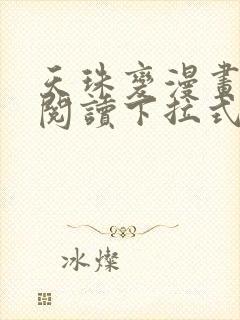 天珠變漫畫
閱讀下拉式
冰燦